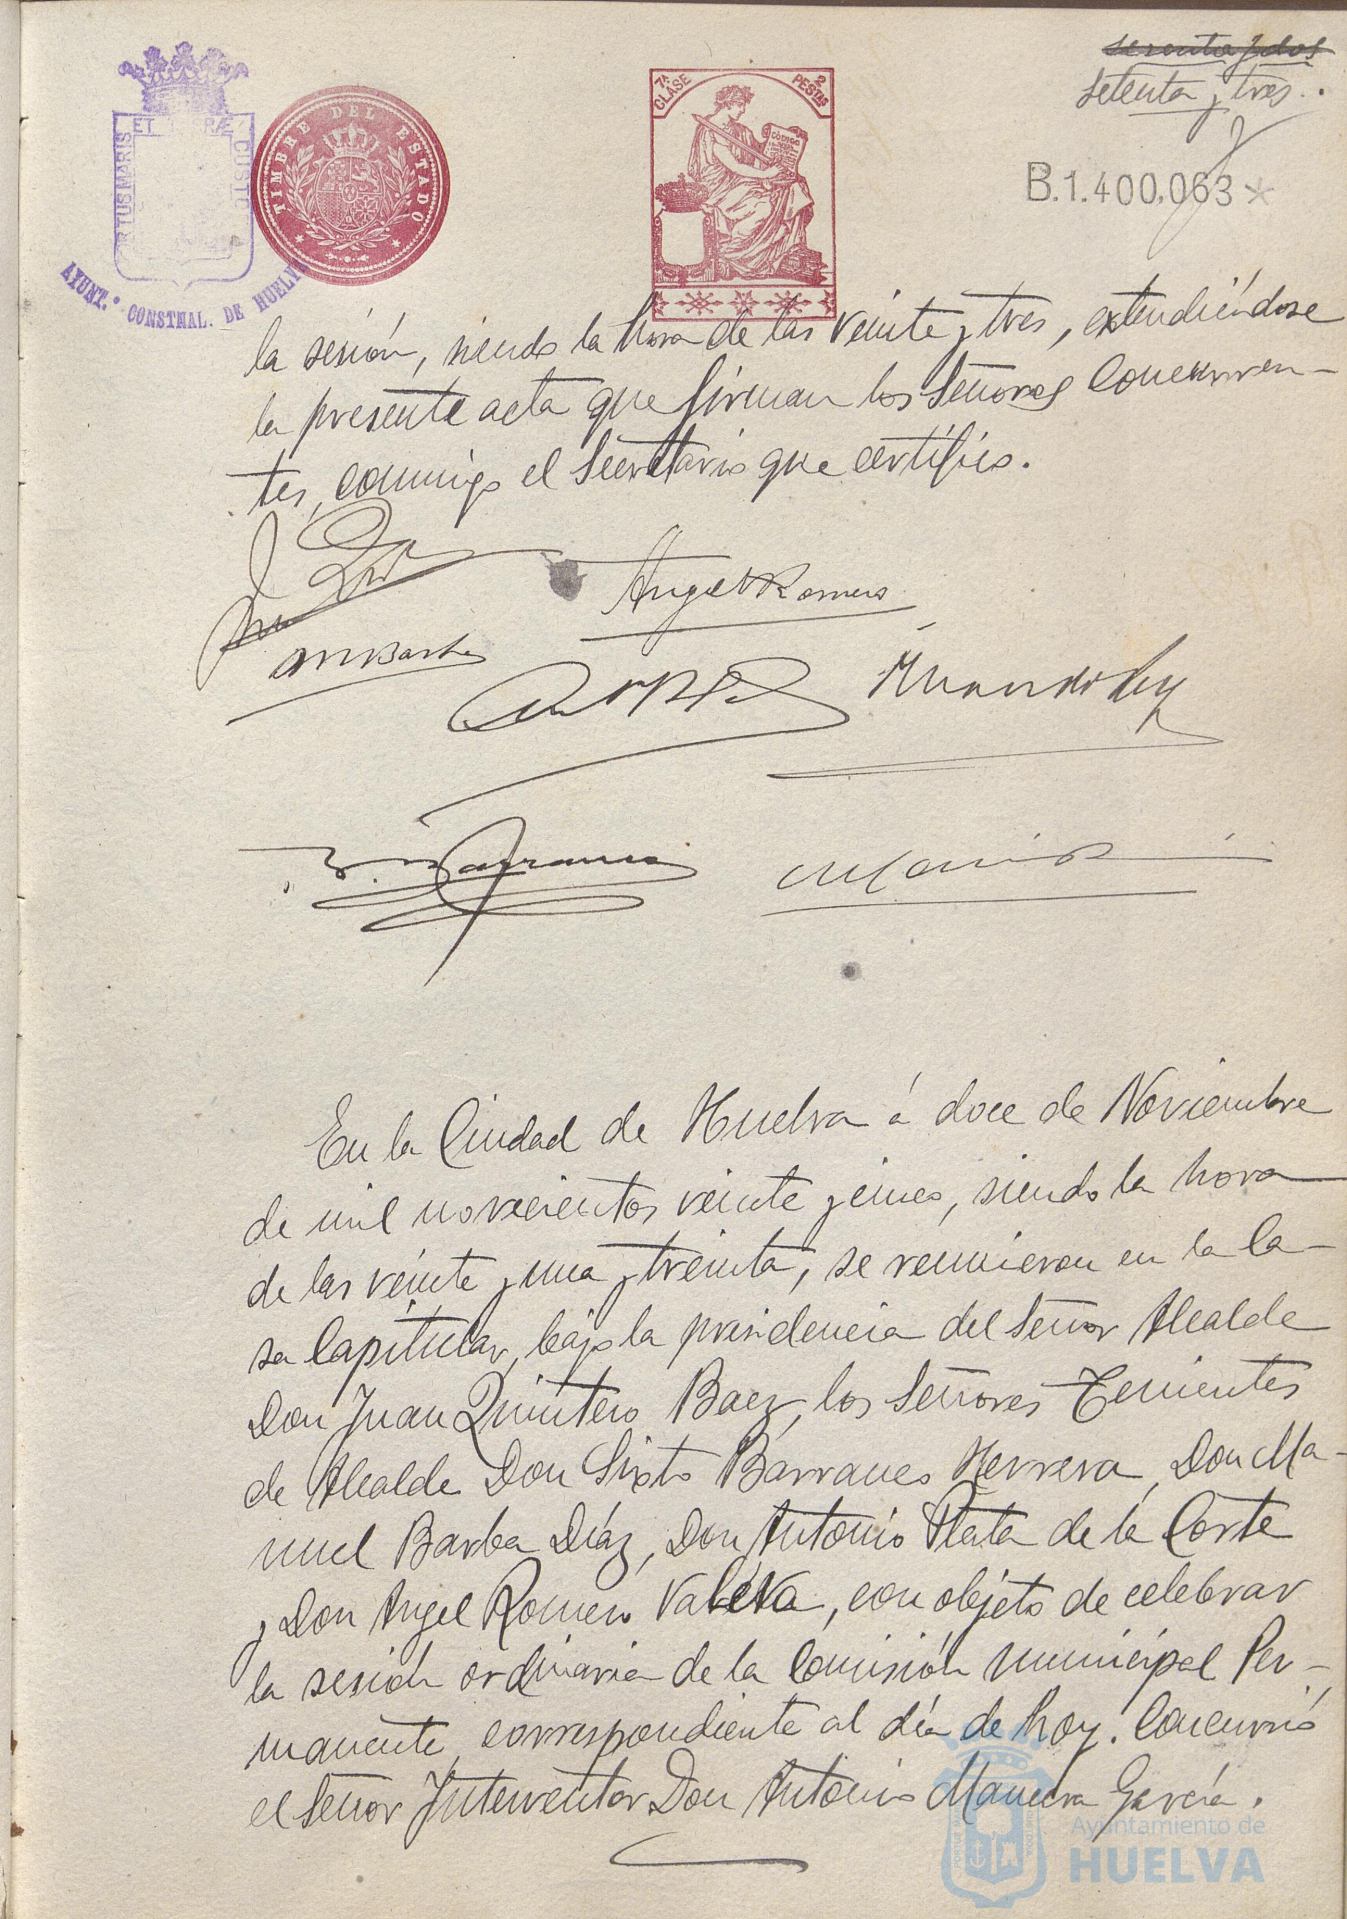 setenta y dos
setenta y tres.
B.1.400.063*
PORTUS MARIS ET TERRAE CUSTO
AYUNT.º CONSTNAL. DE HUELVA
TIMBRE DEL ESTADO
7ª CLASE 2 PESTAS
CÓDIGO
la sesión, siendo la hora de las veinte y tres, extendiéndose
la presente acta que firman los Señores concurren-
tes, conmigo el Secretario que certifico.
Angel Romero
M Barba
Barranco
En la Ciudad de Huelva á doce de Noviembre
de mil novecientos veinte y cinco, siendo la hora
de las veinte y una y treinta, se reunieron en la Ca-
sa Capitular, bajo la presidencia del Señor Alcalde
Don Juan Quintero Baez, los Señores Tenientes
de Alcalde Don Sixto Barranco Herrera, Don Ma-
nuel Barba Díaz, Don Antonio Plata de la Corte
y Don Angel Romero, con objeto de celebrar
la sesión ordinaria de la Comisión municipal Per-
manente, correspondiente al día de hoy. Concurrió
el Señor Interventor Don Antonio Manera García.
Ayuntamiento de
HUELVA